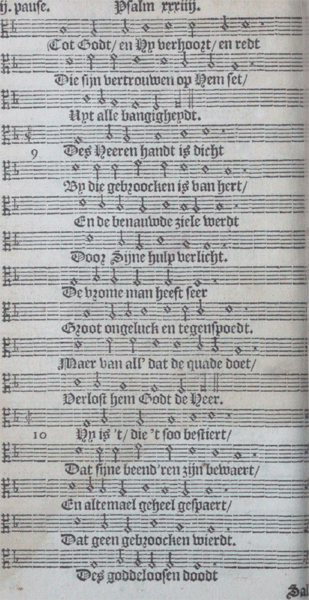 ij. pause. Psalm xxxiiij.
Tot Godt/ en Hy verhoort/ en redt
Die sijn vertrouwen op Hem set/
Uyt alle bangigheydt.
9 Des Heeren handt is dicht
By die gebroocken is van hert/
En de benauwde ziele werdt
Door Sijne hulp verlicht.
De vrome man heeft seer
Groot ongeluck en tegenspoedt.
Maer van all' dat de quade doet/
Verlost hem Godt de Heer.
10 Hy is 't/ die 't soo bestiert/
Dat sijne beend'ren zijn bewaert/
En altemael geheel gespaert/
Dat geen gebroocken wierdt.
Des goddeloosen doodt
Sal